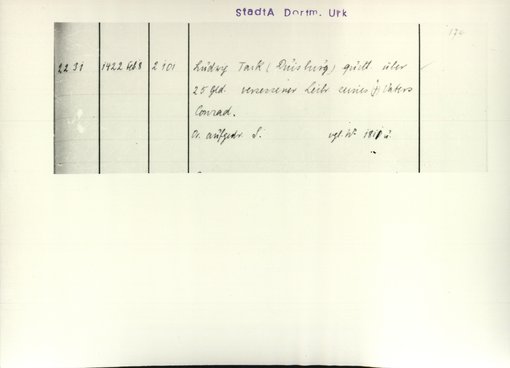 StadtA Dortm. Urk
170
2231 1422 Feb 8 2101 Ludwig Tark (Duisburg) quitt. über
25 Gld. versessener Leibr. seines (†) Vaters
Conrad.
Or. aufgedr. S. vgl. Nr.